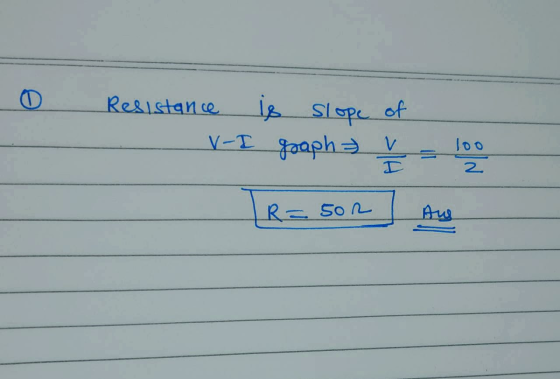 ① Resistance is slope of
V-I graph ⇒ V/I = 100/2
R = 50Ω Ans